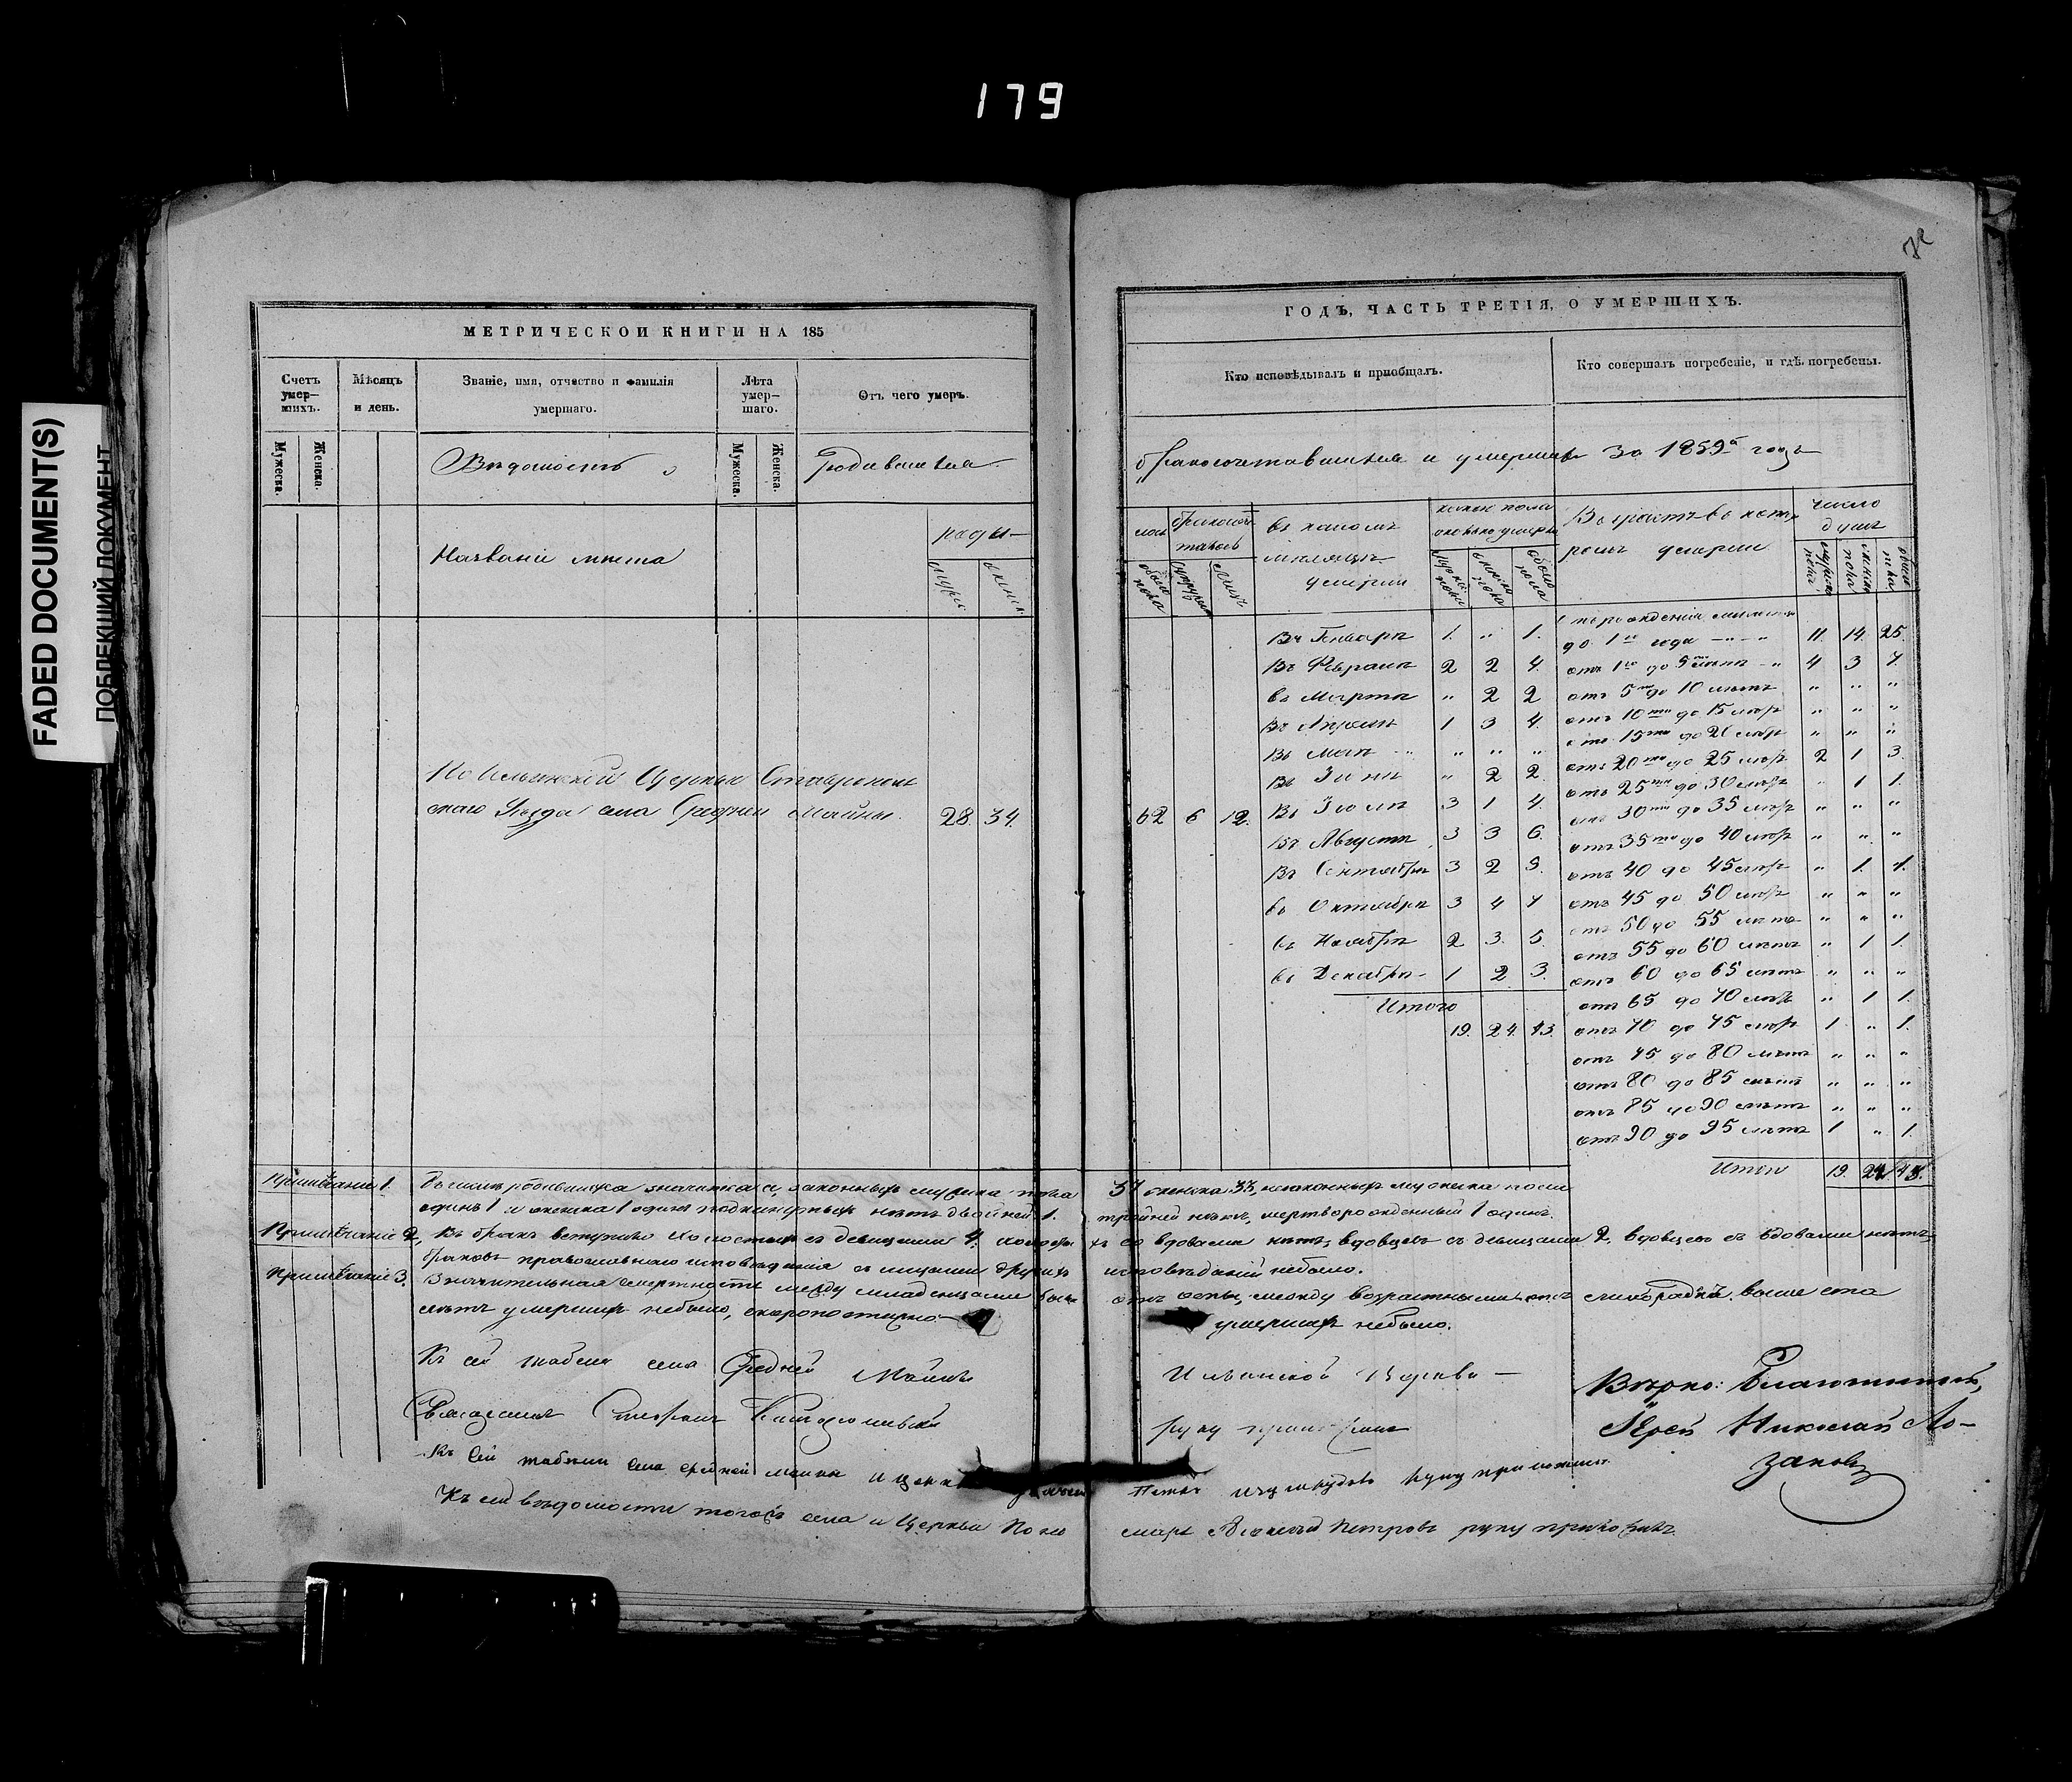 179
FADED DOCUMENT(S)
ПОБЛЕКШИЙ ДОКУМЕНТ
МЕТРИЧЕСКОЙ КНИГИ НА 185
Счетъ умер-шихъ.
Мѣсяцъ и день.
Званіе, имя, отчество и фамилія умершаго.
Лѣта умер-шаго.
Отъ чего умеръ.
Мужеска.
Женска.
Мужеска.
Женска.
Вѣдомость о
Родившихся
Названіе мѣста
роди-
мужес.
женск.
По Ильинской Церкви Ставрополь
скаго Уѣзда села Средней Майны.
28. 34.
Примѣчаніе 1.
одинъ 1 и женска 1 одинъ подкинутыхъ нѣтъ двойней 1.
Примѣчаніе 2,
Въ бракъ вступило холостыхъ съ девицами 4,
браковъ православнаго исповѣданія съ лицами другихъ
Примѣчаніе 3,
Значительная смертность между младенцами была
лѣтъ умершихъ небыло, скоропостижно
Къ сей табели села Средней Майны
Священникъ Стефанъ
Къ сей табели села средней майны и церкви
Къ сей вѣдомости тогожъ села и Церкви Поно
ГОДЪ, ЧАСТЬ ТРЕТІЯ, О УМЕРШИХЪ.
Кто исповѣдывалъ и пріобщалъ.
Кто совершалъ погребеніе, и гдѣ погребены.
бракосочетавшихся и умершихъ за 1859й годъ
лось
бракосоч-
талось
обоего пола
супруж.
лицъ
въ какомъ
мѣсяцѣ
умерли
какого пола
сколько умерло
мужска пола
женска пола
обоего пола
Возрастъ въ кото
ромъ умерли
число
душъ
мужска пола
женска пола
обоего пола
62 6 12.
Въ Январѣ 1. " 1.
Въ Февралѣ 2 2 4.
въ Мартѣ " 2 2
Въ Апрелѣ 1 3 4.
Въ Маѣ " " "
Въ Іюнѣ " 2 2.
Въ Іюлѣ 3 1 4.
Въ Августѣ 3 3 6.
Въ Сентябрѣ 3 2 5.
въ Октябрѣ 3 4 7
въ Ноябрѣ 2 3. 5.
въ Декабрѣ 1 2 3.
Итого
19. 24. 43.
отъ рожденія
до 1го года 11. 14. 25.
отъ 1го до 5 лѣтъ 4 3 7.
отъ 5ти до 10 лѣтъ " " "
отъ 10ти до 15 лѣтъ " " "
отъ 15ти до 20 лѣтъ " " "
отъ 20ти до 25 лѣтъ 2 1 3.
отъ 25ти до 30 лѣтъ " 1 1.
отъ 30ти до 35 лѣтъ " " "
отъ 35ти до 40 лѣтъ " " "
отъ 40 до 45 лѣтъ " 1. 1.
отъ 45 до 50 лѣтъ " " "
отъ 50 до 55 лѣтъ " " "
отъ 55 до 60 лѣтъ " 1 1.
отъ 60 до 65 лѣтъ " " "
отъ 65 до 70 лѣтъ " 1 1.
отъ 70 до 75 лѣтъ 1 " 1.
отъ 75 до 80 лѣтъ " " "
отъ 80 до 85 лѣтъ " " "
отъ 85 до 90 лѣтъ " " "
отъ 90 до 95 лѣтъ 1 " 1.
Итого 19. 24. 43.
женска 33, незаконныхъ мужеска пола
тройней нѣтъ, мертворожденный 1 одинъ.
со вдовами нѣтъ, вдовцевъ съ девицами 2, вдовцевъ съ вдовами нѣтъ,
исповѣданій небыло.
отъ оспы, между возрастными отъ лихорадки. выше ста
умершихъ небыло.
Ильинской Церкви
руку приложилъ
руку приложилъ.
марь Алексѣй Петровъ руку приложилъ.
Вѣрно: Благочинный,
Іерей Николай Ло-
заковъ